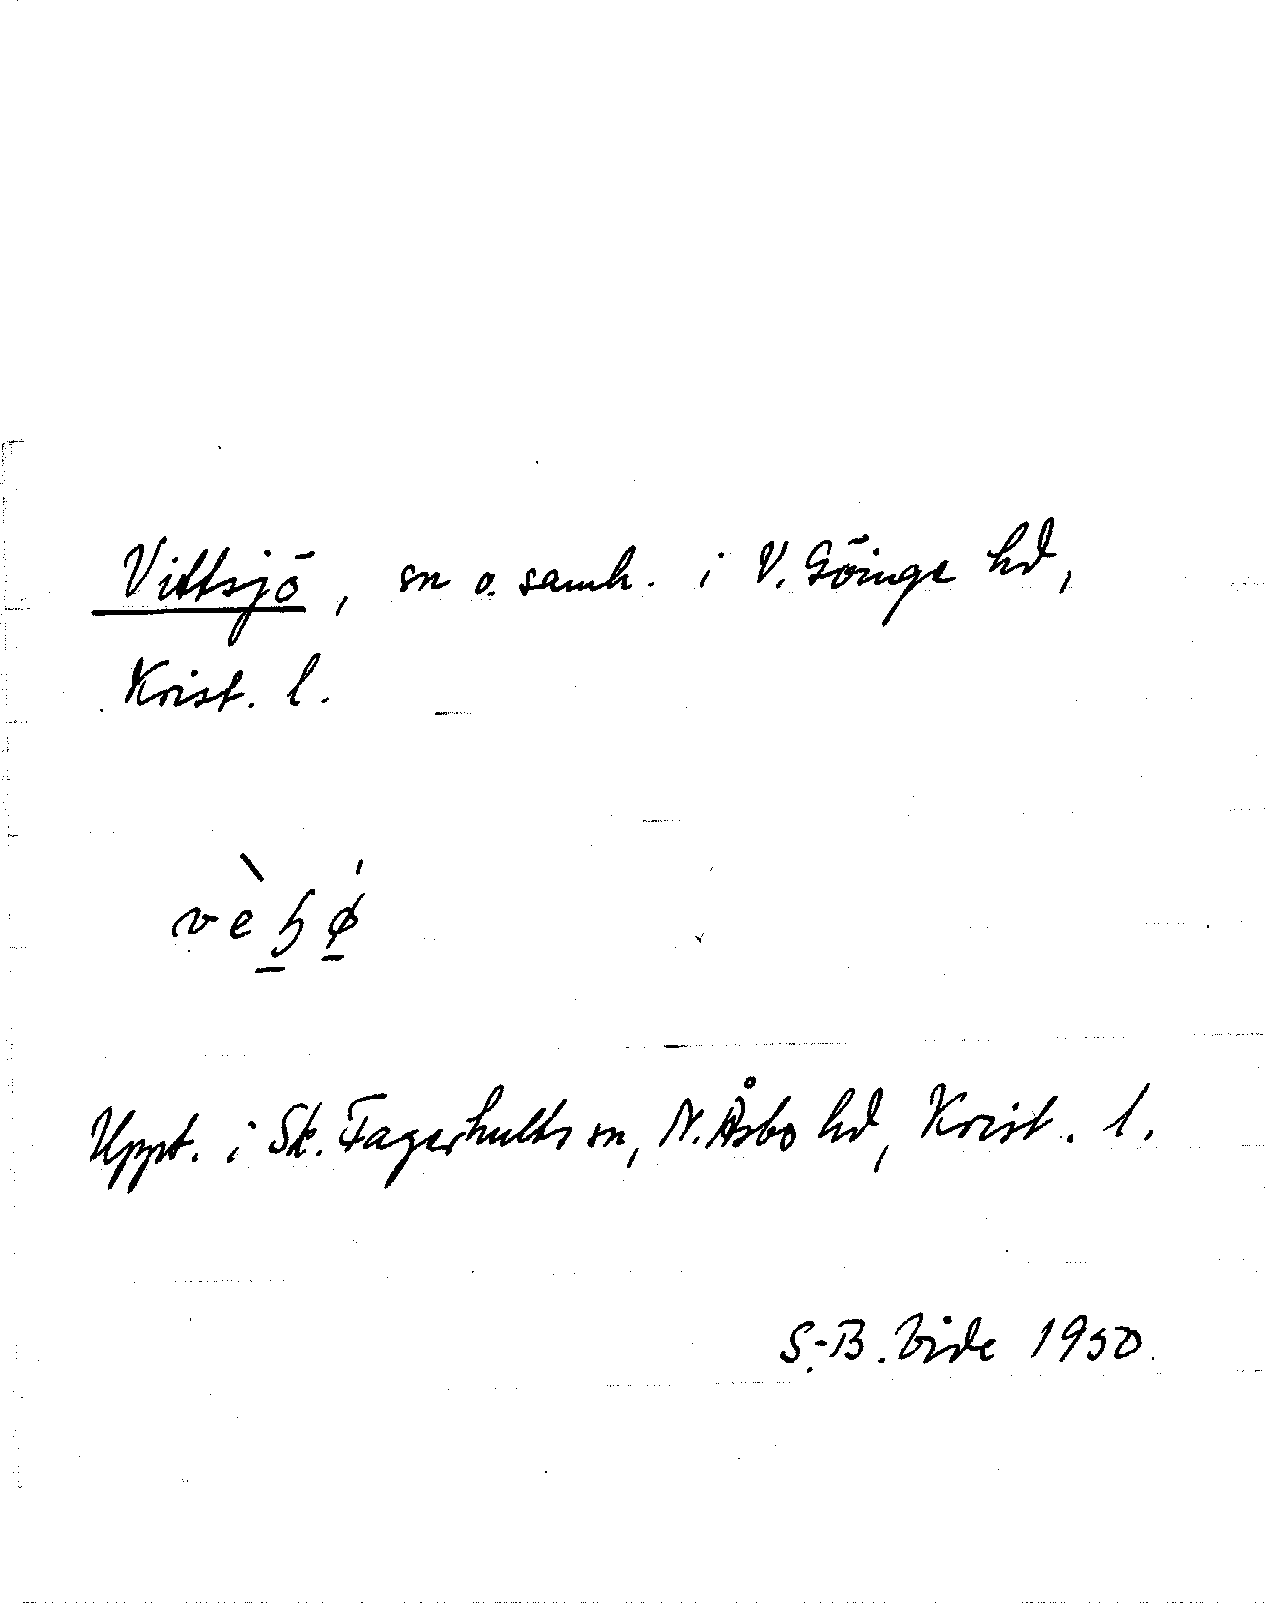 Vittsjö, sn o. samh. i V. Göinge hd,
Krist. l.
vèꜧǿ̠
Uppt. i Sk. Fagerhults sn, N. Åsbo hd, Krist. l.
S.-B. Vide 1950.